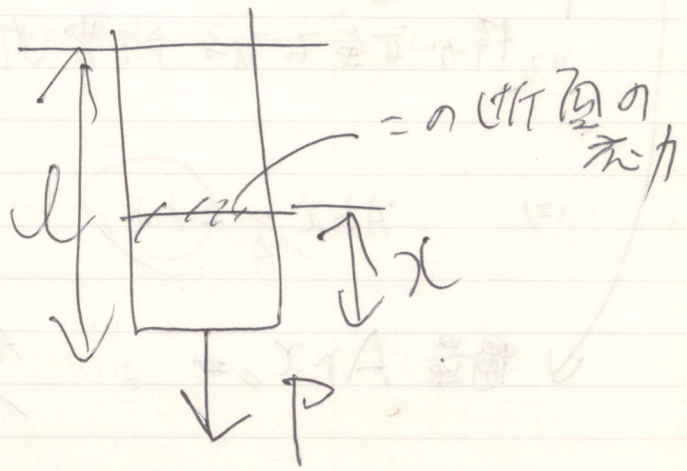 この断面の
応力
l
x
P